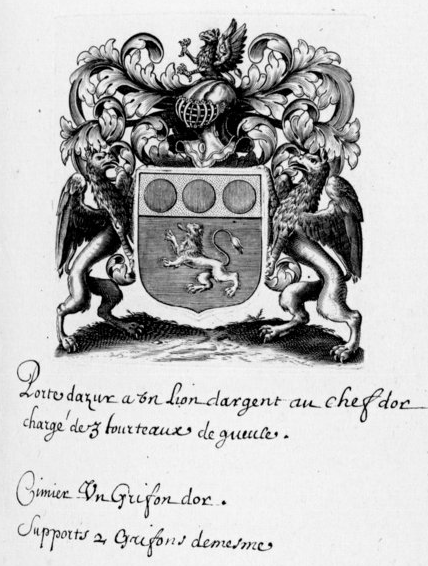 Porte dazur a un Lion dargent au chef dor
chargé de 3 tourteaux de gueule.
Cimier Un Grifon dor.
Supports 2 Grifons demesme